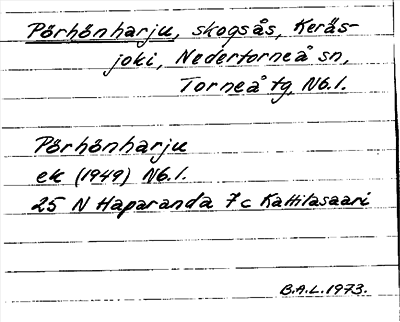 Pörhönharju, skogsås, Keräs-
joki, Nedertorneå sn,
Torneå tg, Nb.l.
Pörhönharju
ek (1949) Nb.l.
25 N Haparanda 7c Kattilasaari
B.A.L. 1973.